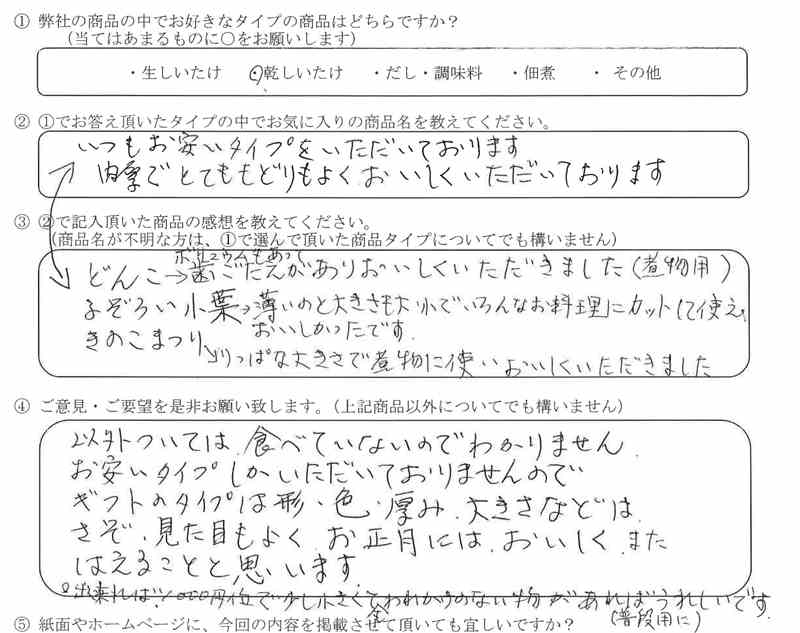 ① 弊社の商品の中でお好きなタイプの商品はどちらですか？
（当てはあまるものに○をお願いします）
・生しいたけ ・乾しいたけ ・だし・調味料 ・佃煮 ・ その他
② ①でお答え頂いたタイプの中でお気に入りの商品名を教えてください。
いつもお安いタイプをいただいております
肉厚でとてももどりもよくおいしくいただいております
③ ②で記入頂いた商品の感想を教えてください。
（商品名が不明な方は、①で選んで頂いた商品タイプについてでも構いません）
ボリュウムもあって
どんこ→歯ごたえがありおいしくいただきました（煮物用）
ふぞろい小葉→薄いのと大きさも大小でいろんなお料理にカットして使え、
おいしかったです。
きのこまつり
→りっぱな大きさで煮物に使いおいしくいただきました
④ ご意見・ご要望を是非お願い致します。（上記商品以外についてでも構いません）
以外ついては、食べていないのでわかりません。
お安いタイプしかいただいておりませんので
ギフトのタイプは形・色・厚み、大きさなどは
さぞ、見た目もよく、お正月には、おいしく、また
はえることと思います。
○出来れば、1000円位で少し小さくてわれかけのない物があればうれしいです。
（普段用に）
⑤ 紙面やホームページに、今回の内容を掲載させて頂いても宜しいですか？